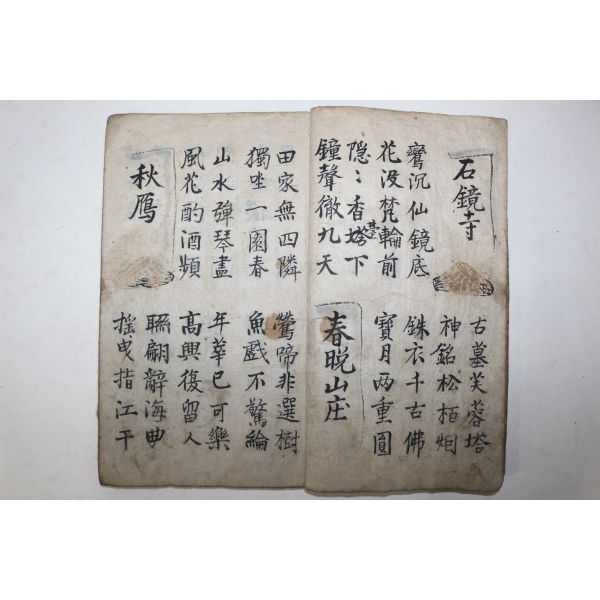 石鏡寺
古墓芙蓉塔
神銘松栢烟
鸞沉仙鏡底
花没梵輪前
銖衣千古佛
寶月两重圓
隐〻香塔下
臺
鐘聲徹九天
春晩山庄
田家無四隣
獨坐一園春
鶯啼非選樹
魚戲不驚綸
山水弹琴盡
風花酌酒頻
年華已可樂
高興復留人
秋鴈
聮翩辭海曲
摇曳指江干